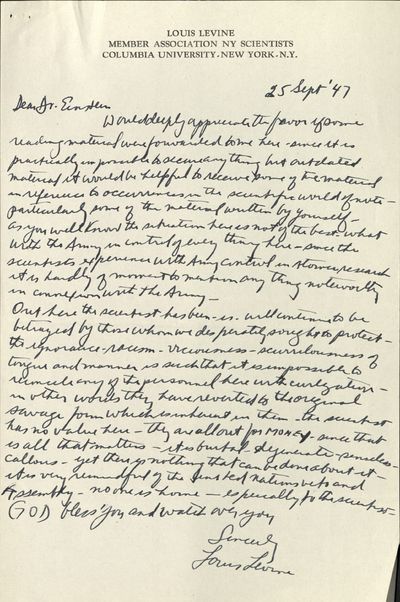 LOUIS LEVINE
MEMBER ASSOCIATION NY SCIENTISTS
COLUMBIA UNIVERSITY·NEW YORK·N.Y.
25 Sept '47
Dear Dr. Einstein
Would deeply appreciate the favor if some
reading material were forwarded to me here - since it is
practically impossible to secure any thing but outdated
material it would be helpful to receive some of the material
in reference to occurrences in the scientific world of note -
particularly some of the material written by yourself -
as you well know the situation here is not of the best - what
with the Army in control of every thing here - since the
scientists experience with Army control in research
it is hardly of moment to mention any thing noteworthy
in connection with the Army -
Out here the scientist has been - is - will continue to be
betrayed by those whom we desperately sought to protect -
the ignorance - racism - viciousness - scurrilousness of
tongue and manner is such that it is impossible to
reconcile any of the personnel here with civilization -
in other words they have reverted to the original
savage form which is inherent in them - the scientist
has no value here - they are all out for MONEY - since that
is all that matters - it is brutal - degenerate - senseless -
callous - yet there is nothing that can be done about it -
it is very remindful of the United Nations veto and
Assembly - no one is home - especially to the scientist -
GOD bless you and watch over you
Sincerely
Louis Levine